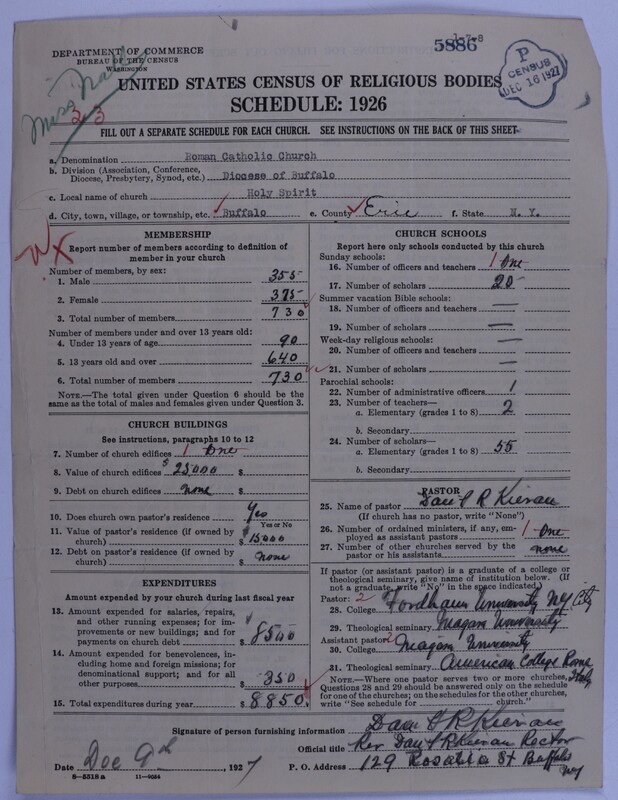 1-7-8
5886
DEPARTMENT OF COMMERCE
BUREAU OF THE CENSUS
WASHINGTON
P
CENSUS
DEC 16 1927
Miss
23
UNITED STATES CENSUS OF RELIGIOUS BODIES
SCHEDULE: 1926
FILL OUT A SEPARATE SCHEDULE FOR EACH CHURCH. SEE INSTRUCTIONS ON THE BACK OF THIS SHEET
a. Denomination Roman Catholic Church
b. Division (Association, Conference,
Diocese, Presbytery, Synod, etc.) Diocese of Buffalo
c. Local name of church Holy Spirit
d. City, town, village, or township, etc. Buffalo e. County Erie f. State N. Y.
MEMBERSHIP
Report number of members according to definition of
member in your church
Number of members, by sex:
1. Male 355
2. Female 375
3. Total number of members 730
Number of members under and over 13 years old:
4. Under 13 years of age 90
5. 13 years old and over 640
6. Total number of members 730
NOTE.—The total given under Question 6 should be
the same as the total of males and females given under Question 3.
CHURCH BUILDINGS
See instructions, paragraphs 10 to 12
7. Number of church edifices 1 One
8. Value of church edifices $25,000 $
9. Debt on church edifices none $
10. Does church own pastor's residence Yes
Yes or No
11. Value of pastor's residence (if owned by
church) $ 15000
12. Debt on pastor's residence (if owned by
church) $ none
EXPENDITURES
Amount expended by your church during last fiscal year
13. Amount expended for salaries, repairs,
and other running expenses; for im-
provements or new buildings; and for
payments on church debt $ 8500
14. Amount expended for benevolences, in-
cluding home and foreign missions; for
denominational support; and for all
other purposes 350
15. Total expenditures during year $ 8850
CHURCH SCHOOLS
Report here only schools conducted by this church
Sunday schools:
16. Number of officers and teachers 1 One
17. Number of scholars 20
Summer vacation Bible schools:
18. Number of officers and teachers —
19. Number of scholars —
Week-day religious schools:
20. Number of officers and teachers —
21. Number of scholars —
Parochial schools:
22. Number of administrative officers 1
23. Number of teachers—
a. Elementary (grades 1 to 8) 2
b. Secondary
24. Number of scholars—
a. Elementary (grades 1 to 8) 55
b. Secondary
PASTOR
25. Name of pastor R Kiernan
(If church has no pastor, write "None")
26. Number of ordained ministers, if any, em-
ployed as assistant pastors 1 One
27. Number of other churches served by the
pastor or his assistants none
If pastor (or assistant pastor) is a graduate of a college or
theological seminary, give name of institution below. (If
not a graduate, write "No" in the space indicated.)
Pastor: 2
28. College Fordham University N.Y. City
29. Theological seminary Niagara University
Assistant pastor: 2
30. College Niagara University
31. Theological seminary American College Rome Italy
NOTE.—Where one pastor serves two or more churches,
Questions 28 and 29 should be answered only on the schedule
for one of the churches; on the schedules for the other churches,
write "See schedule for church."
Signature of person furnishing information R Kiernan
Official title Rev R Kiernan Rector
Date Dec 9th, 1927 P. O. Address 129 Rosalia St Buffalo
NY
8—5518 a 11—9064